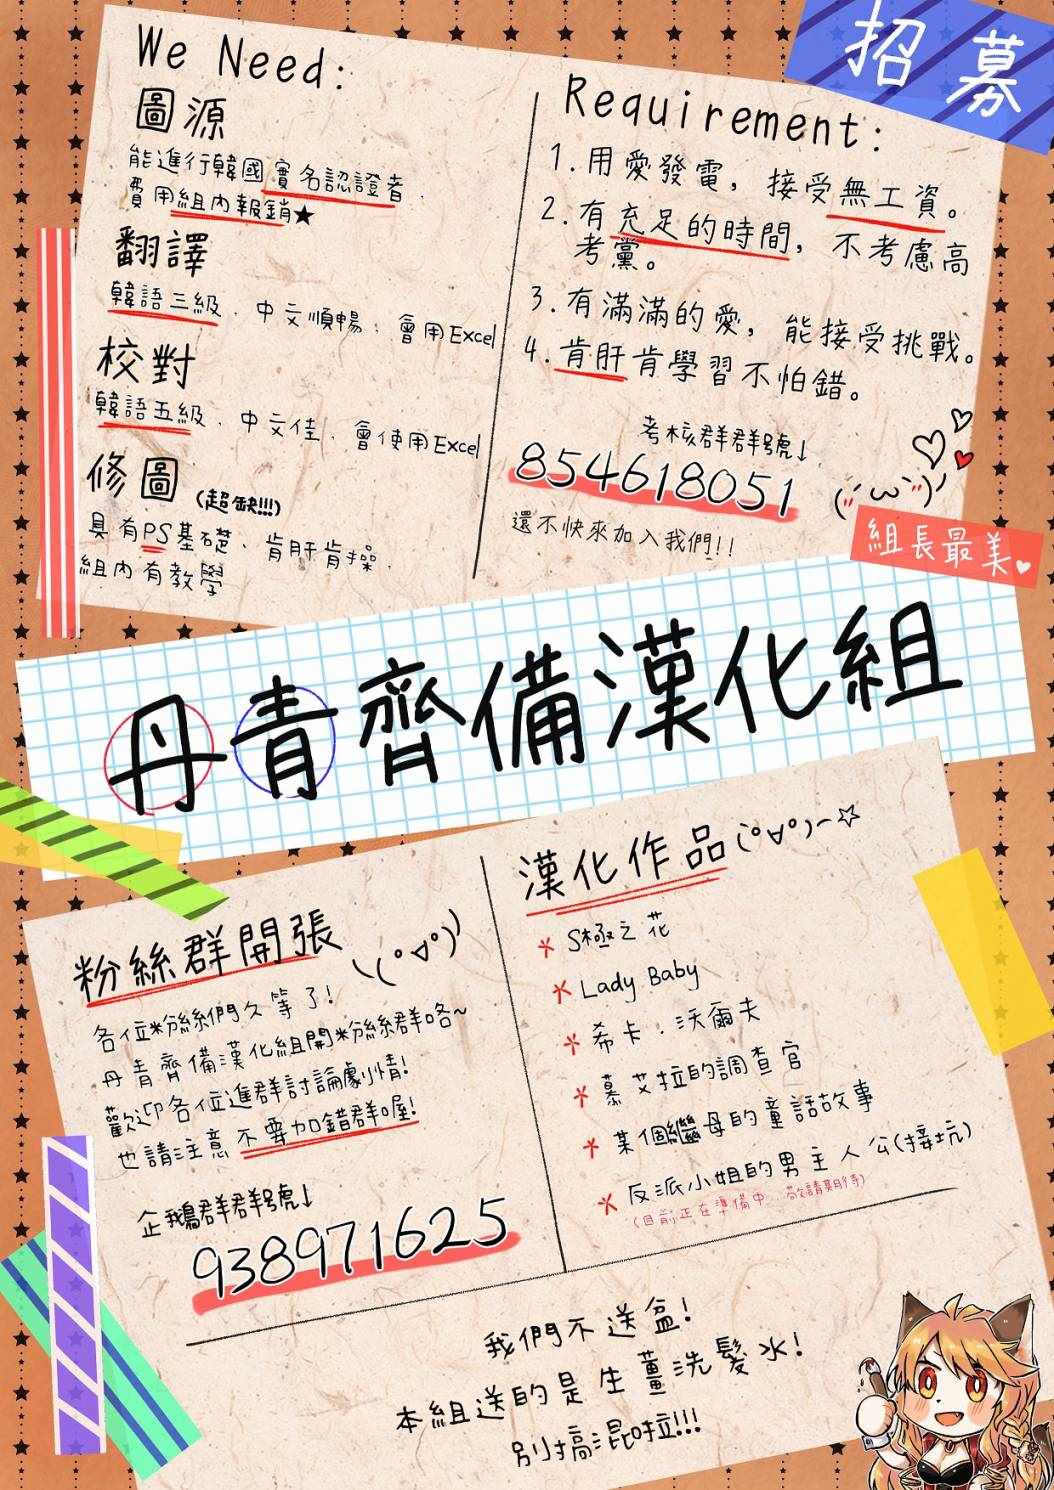 招募
We Need:
圖源
能進行韓國實名認證者.
費用組內報銷★
翻譯
韓語三級、中文順暢、會用Excel
校對
韓語五級、中文佳、會使用Excel
修圖(超缺!!!)
具有PS基礎、肯肝肯操.
組內有教學
Requirement:
1.用愛發電，接受無工資。
2.有充足的時間，不考慮高
考黨。
3.有滿滿的愛，能接受挑戰。
4.肯肝肯學習不怕錯。
考核群群號↓
854618051
還不快來加入我們!!
組長最美
丹青齊備漢化組
粉絲群開張
各位粉絲們久等了!
丹青齊備漢化組開粉絲群咯~
歡迎各位進群討論劇情!
也請注意不要加錯群喔!
企鵝群群號↓
938971625
漢化作品
S極之花
Lady Baby
希卡.沃爾夫
慕艾拉的調查官
某個繼母的童話故事
反派小姐的男主人公(接坑)
(目前正在準備中...敬請期待)
我們不送盒!
本組送的是生薑洗髮水!
別搞混啦!!!